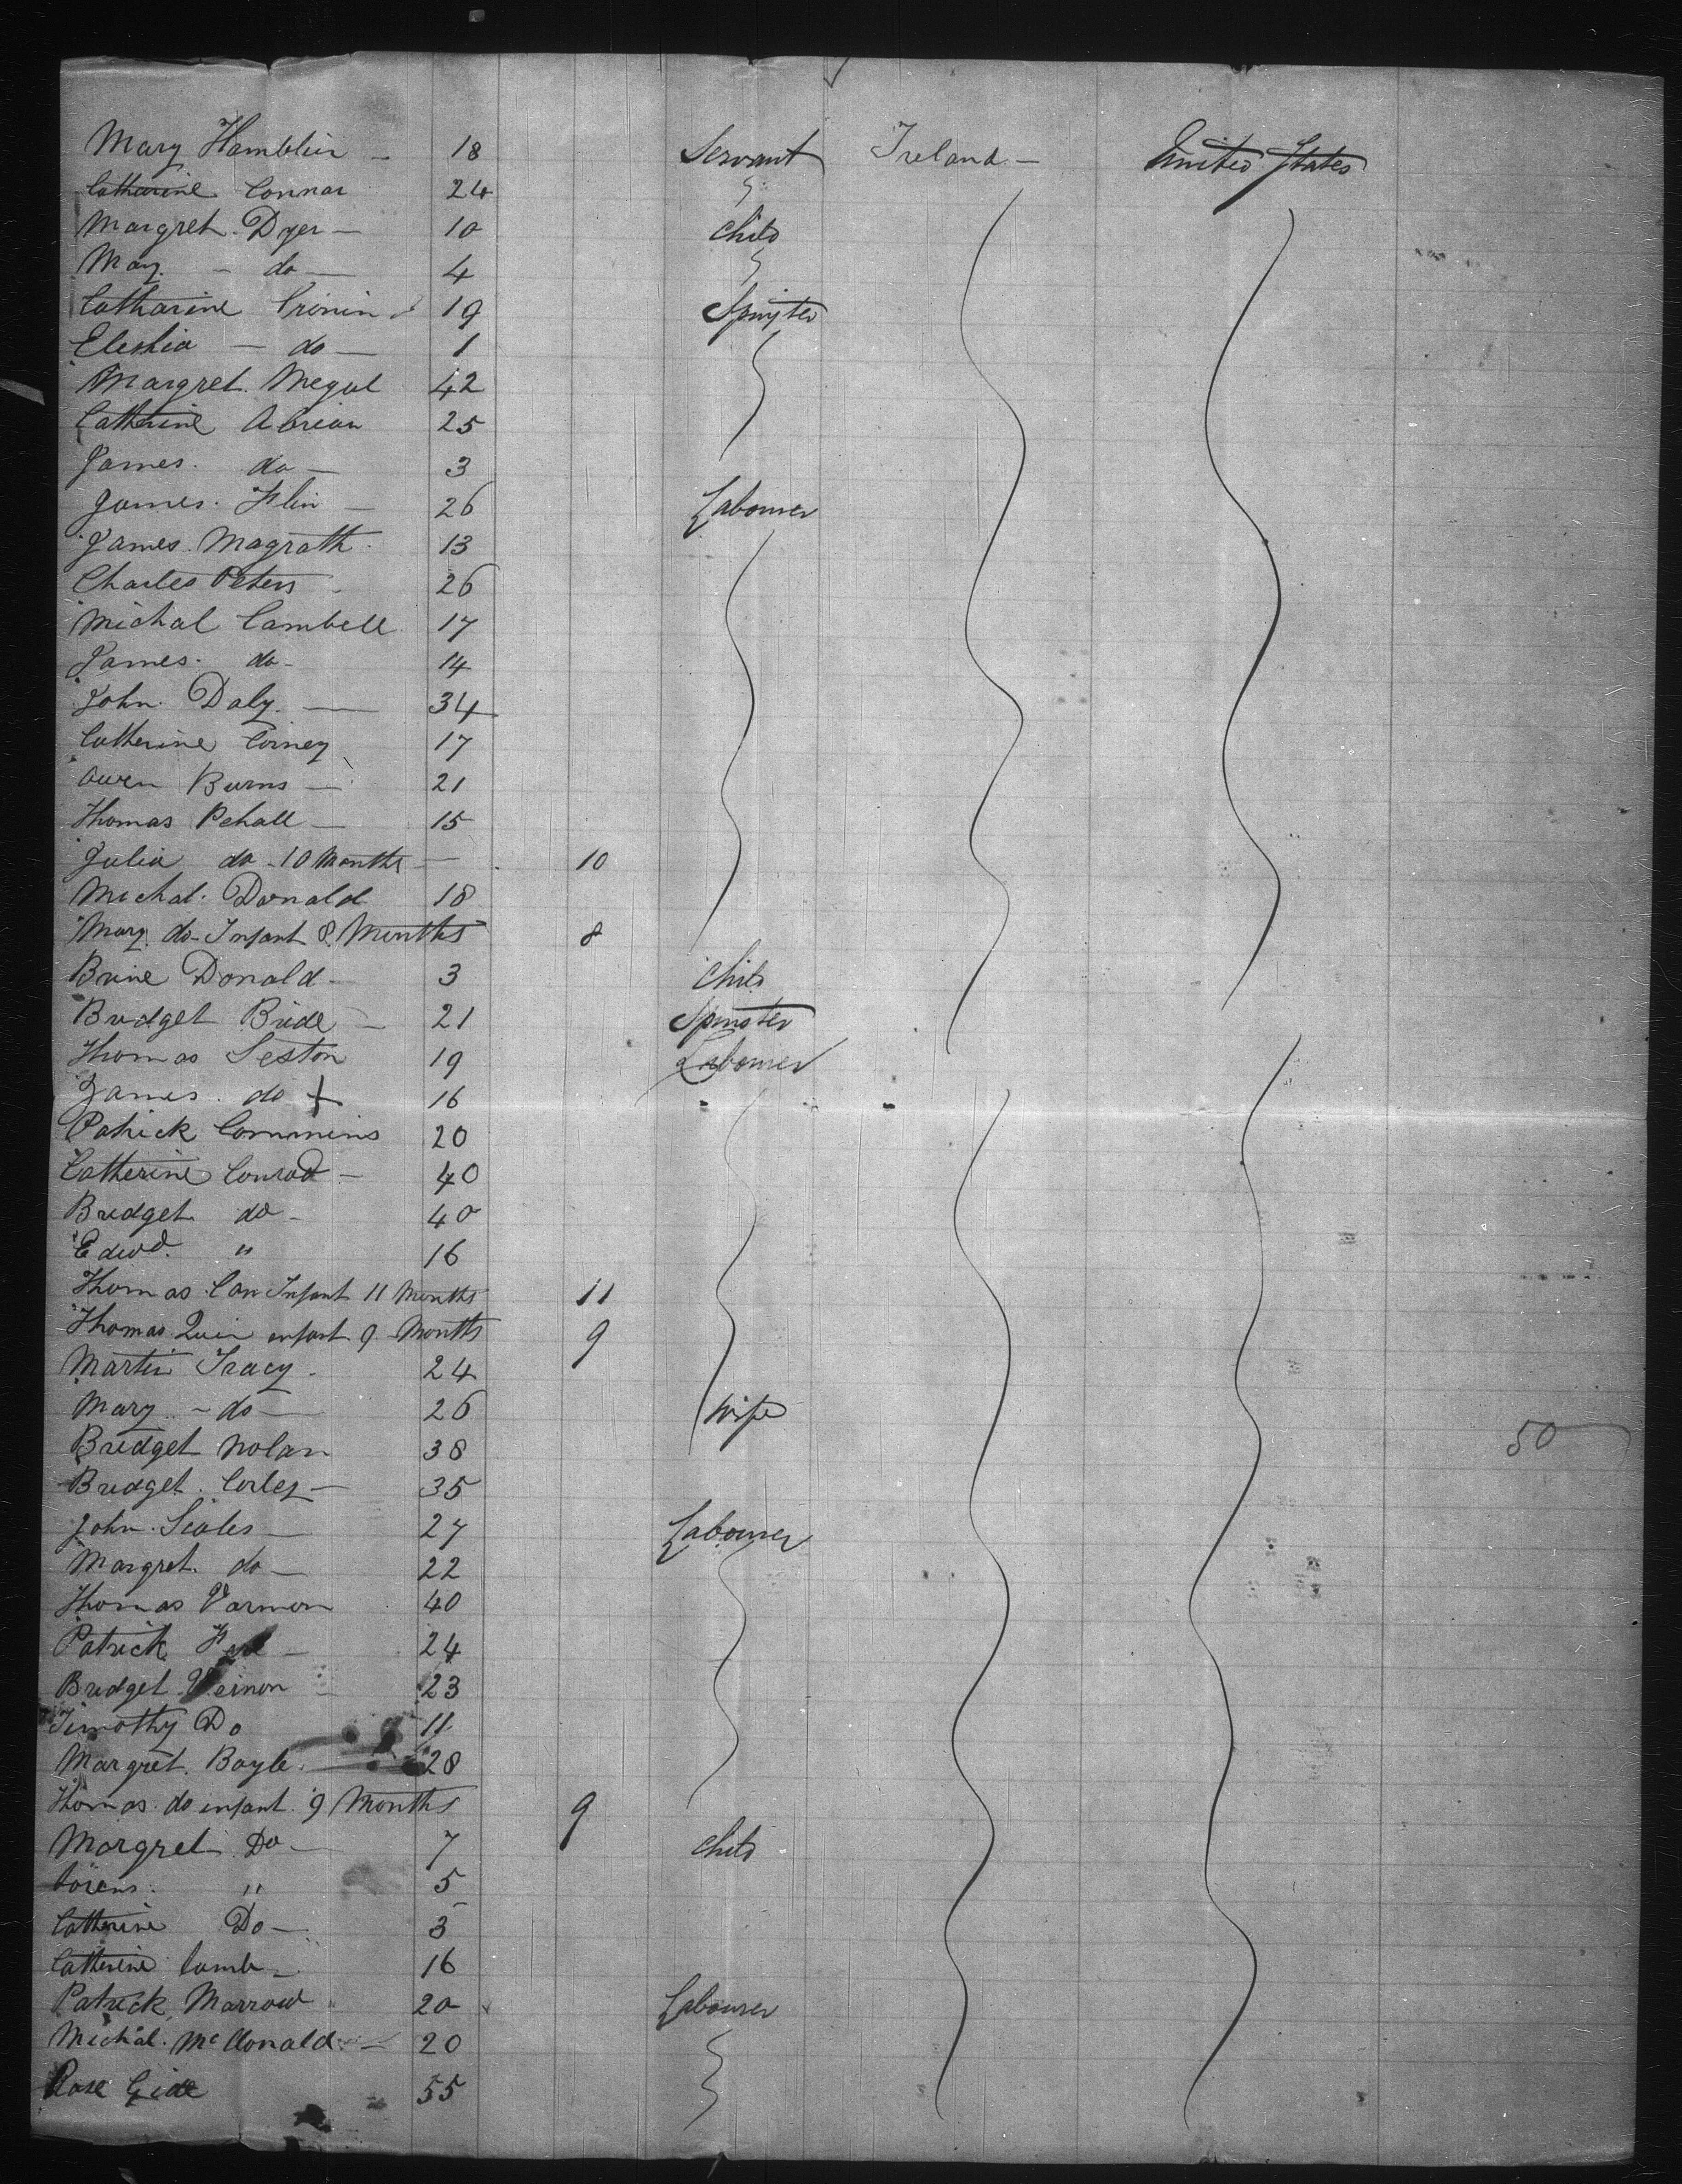 Mary Hamblin - 18 Servant Ireland - United States
Catharine Connar 24
Margret Dyer - 10 Child
May - do - 4
Catharine Cronin 19 Spinster
Eleshia - do - 1
Margret Megul 42
Catherine Abrian 25
James do - 3
James Flin - 26 Labourer
James Magrath 13
Charles Peters 26
Michal Cambell 17
James do - 14
John Daly - 34
Catherine Corney 17
Owen Burns - 21
Thomas Pehall - 15
Julia do - 10 Months - 10
Michal Donald 18
Mary do - Infant 8 Months 8
Brine Donald - 3 Child
Bridget Bride - 21 Spinster
Thomas Seston 19 Labourer
James do + 16
Patrick Commins 20
Catherine Conrad - 40
Bridget do - 40
Edwd. " 16
Thomas Con Infant 11 Months 11
Thomas Quin infant 9 Months 9
Martin Tracy - 24
Mary - do - 26 Wife
Bridget Nolan 38 50
Bridget Corley - 35
John Scales - 27 Labourer
Margret do - 22
Thomas Varmon 40
Patrick - 24
Bridget Vernon - 23
Timothy Do 11
Margret Boyle - 28
Thomas do infant 9 Months 9
Margret Do - 7 Child
" 5
Catherine Do - 3
Catherine Lamb - 16
Patrick Marrow 20 Labourer
Michal McDonald - 20
Rose 55